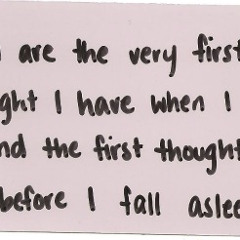 are the very first
ght I have when I
nd the first thought
before I fall aslee